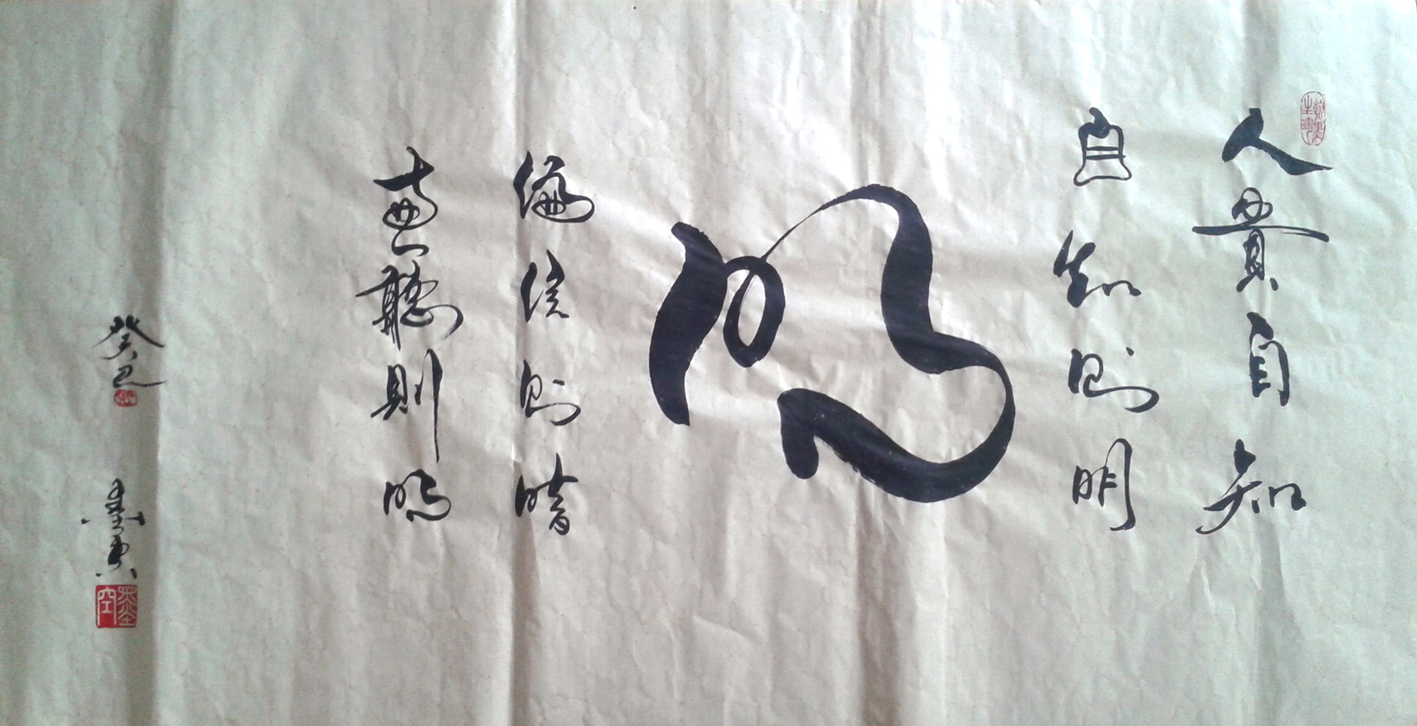 人貴自知
自知則明
明
偏信則暗
兼聽則明
癸巳
墨空